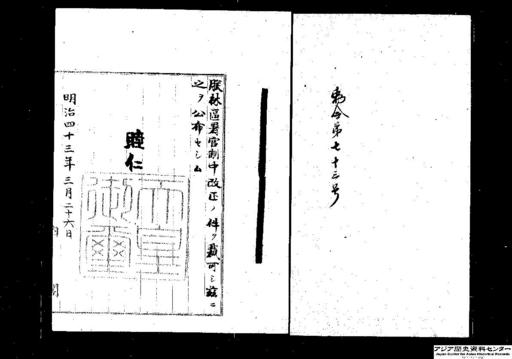 勅令第七十三号
朕林區署官制中改正ノ件ヲ裁可シ茲ニ
之ヲ公布セシム
睦仁
天皇御璽
明治四十三年三月二十六日
内閣
アジア歴史資料センター
Japan Center for Asian Historical Records